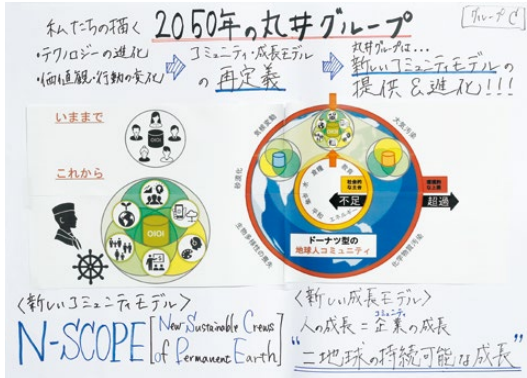 私たちの描く 2050年の丸井グループ
グループC
・テクノロジーの進化
・価値観・行動の変化
コミュニティ・成長モデル
の再定義
丸井グループは…
新しいコミュニティモデルの
提供&進化!!!
いままで
これから
OIOI
気候変動
大気汚染
砂漠化
生物多様性の喪失
化学物質汚染
社会的な土台
環境的な上限
不足
超過
エネルギー
ドーナツ型の
地球人コミュニティ
<新しいコミュニティモデル>
N-SCOPE [New Sustainable Crews
of Permanent Earth]
<新しい成長モデル>
コミュニティ
人の成長=企業の成長
"=地球の持続可能な成長"